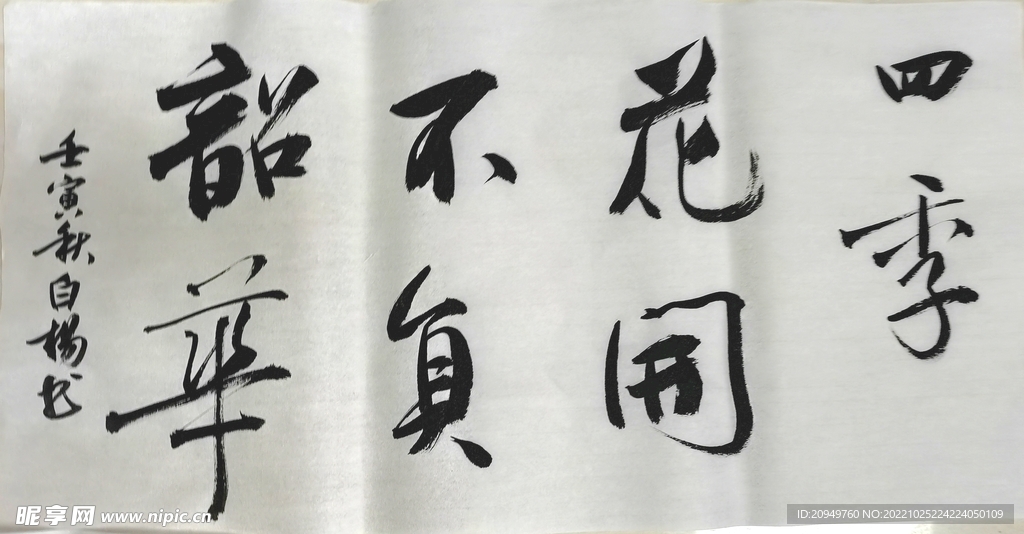 四季
花開
不負
韶華
壬寅秋白楊书
昵享网 www.nipic.cn
ID:20949760 NO:20221025224224050109